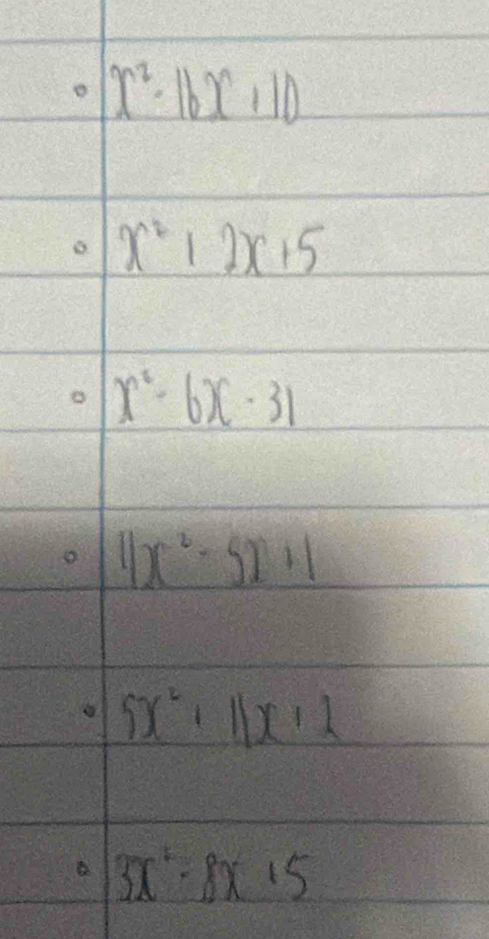 ∘ x² - 16x + 10
∘ x² + 2x + 5
∘ x² - 6x - 31
∘ 11x² - 5x + 1
∘ 5x² + 11x + 2
∘ 3x² - 8x + 5